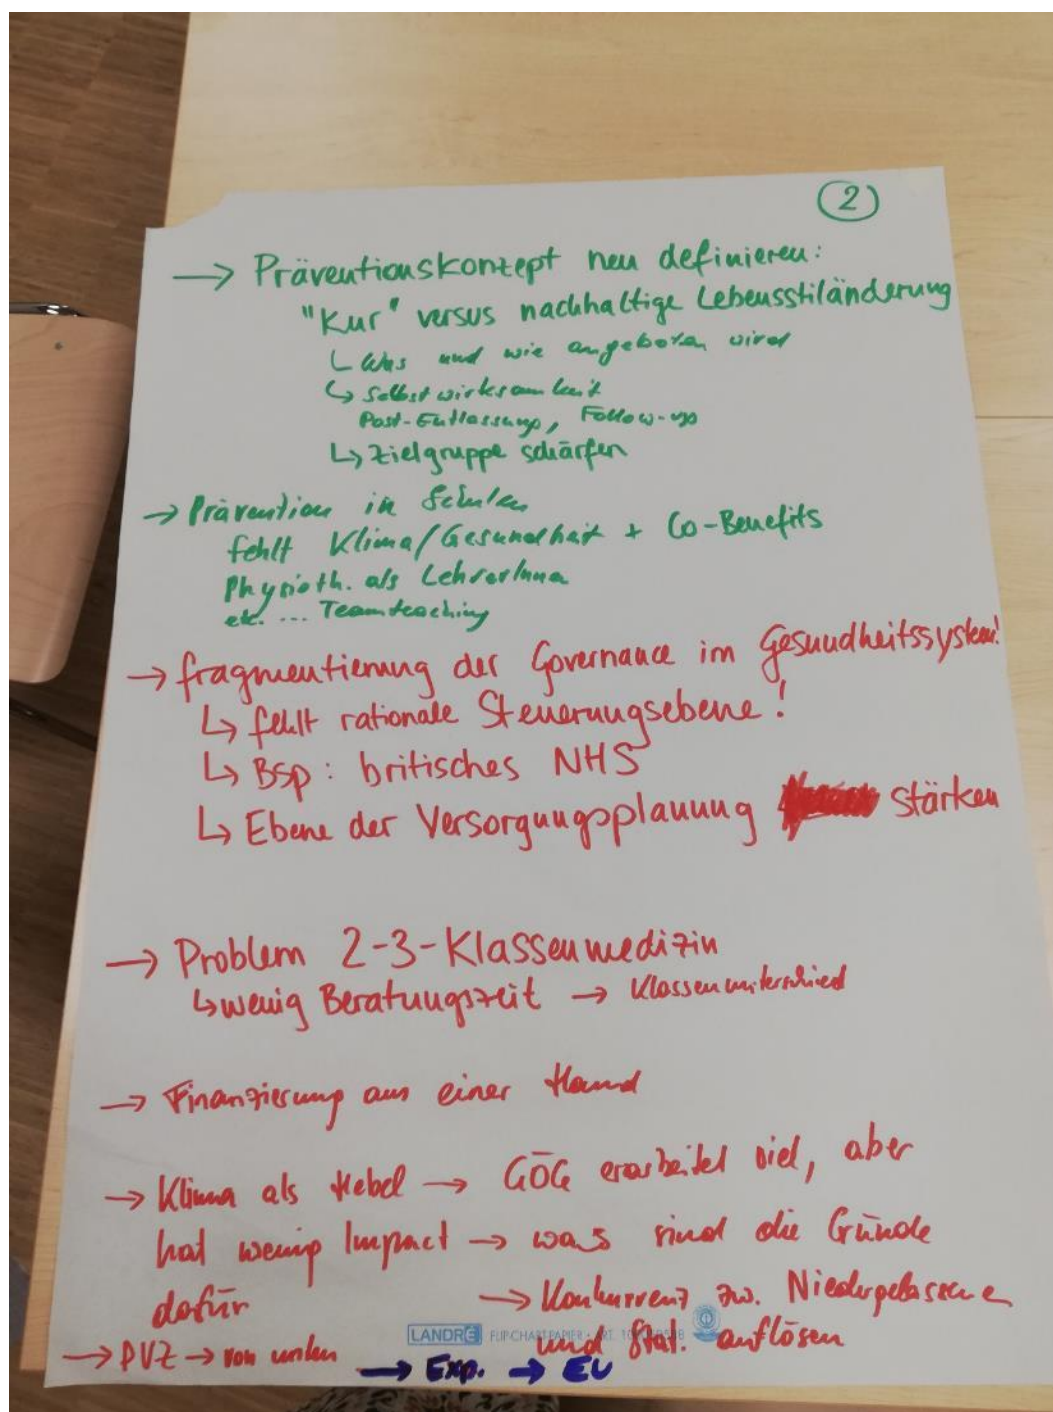 2
→ Präventionskonzept neu definieren:
"Kur" versus nachhaltige Lebensstiländerung
↳ Was und wie angeboten wird
↳ Selbstwirksamkeit
Post-Entlassung, Follow-up
↳ Zielgruppe schärfen
→ Prävention in Schulen
fehlt Klima/Gesundheit + Co-Benefits
Physioth. als LehrerInnen
etc. ... Teamteaching
→ fragmentierung der Governance im Gesundheitssystem!
↳ fehlt rationale Steuerungsebene!
↳ Bsp: britisches NHS
↳ Ebene der Versorgungsplanung stärken
→ Problem 2-3-Klassenmedizin
↳ wenig Beratungszeit → Klassenunterschied
→ Finanzierung aus einer Hand
→ Klima als Hebel → GÖG erarbeitet viel, aber
hat wenig Impact → was sind die Gründe
dafür → Konkurrenz zw. Niedergelassene
und Stat. auflösen
LANDRÉ FLIP-CHART-PAPIER • ART.
→ PVZ → von unten → Exp. → EU